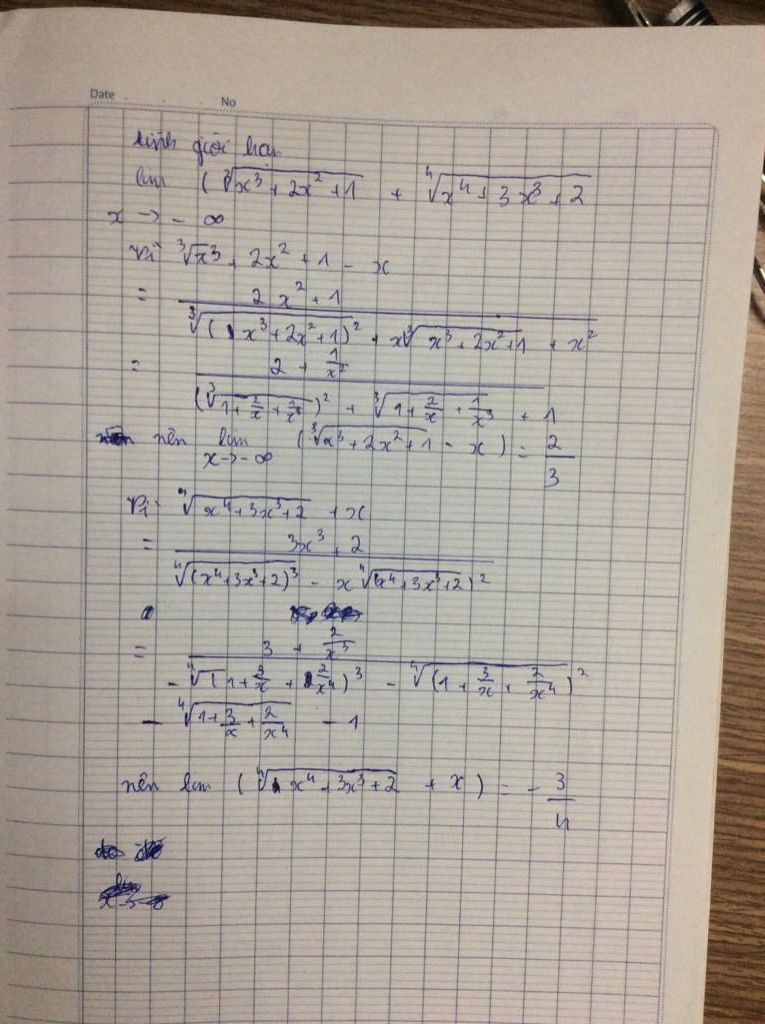 Date No
tính giới hạn
lim (∛(x³ + 2x² + 1) + ∜(x⁴ + 3x³ + 2)
x → - ∞
Vì ∛x³ + 2x² + 1 - x
= (2x² + 1) / (∛(x³ + 2x² + 1)² + x∛(x³ + 2x² + 1) + x²)
= (2 + 1/x²) / ((∛(1 + 2/x + 1/x³))² + ∛(1 + 2/x + 1/x³) + 1)
nên lim (∛(x³ + 2x² + 1) - x) = 2/3
x → - ∞
Vì ∜(x⁴ + 3x³ + 2) + x
= (3x³ + 2) / (∜(x⁴ + 3x³ + 2)³ - x∜(x⁴ + 3x³ + 2)²
= (3 + 2/x³) / (- ∜(1 + 3/x + 2/x⁴)³ - ∜(1 + 3/x + 2/x⁴)²
- ∜(1 + 3/x + 2/x⁴) - 1
nên lim (∜(x⁴ + 3x³ + 2) + x) = - 3/4